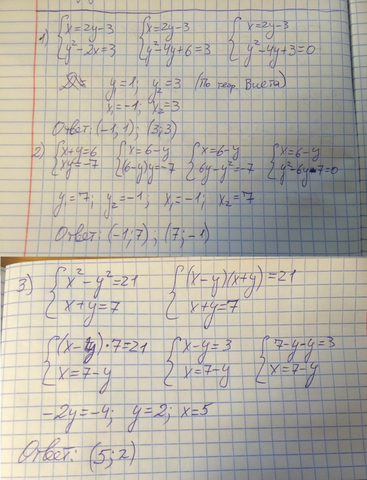 1) {x=2y-3 {x=2y-3 {x=2y-3
{y²-2x=3 {y²-4y+6=3 {y²-4y+3=0
y=1; y₂=3 (По теор. Виета)
x=-1; x₂=3
Ответ: (-1;1); (3;3)
2) {x+y=6 {x=6-y {x=6-y {x=6-y
{xy=-7 {(6-y)y=-7 {6y-y²=-7 {y²-6y-7=0
y=7; y₂=-1, x₁=-1; x₂=7
Ответ: (-1;7); (7;-1)
3) {x²-y²=21 {(x-y)(x+y)=21
{x+y=7 {x+y=7
{(x-y)·7=21 {x-y=3 {7-y-y=3
{x=7-y {x=7-y {x=7-y
-2y=-4; y=2; x=5
Ответ: (5;2)